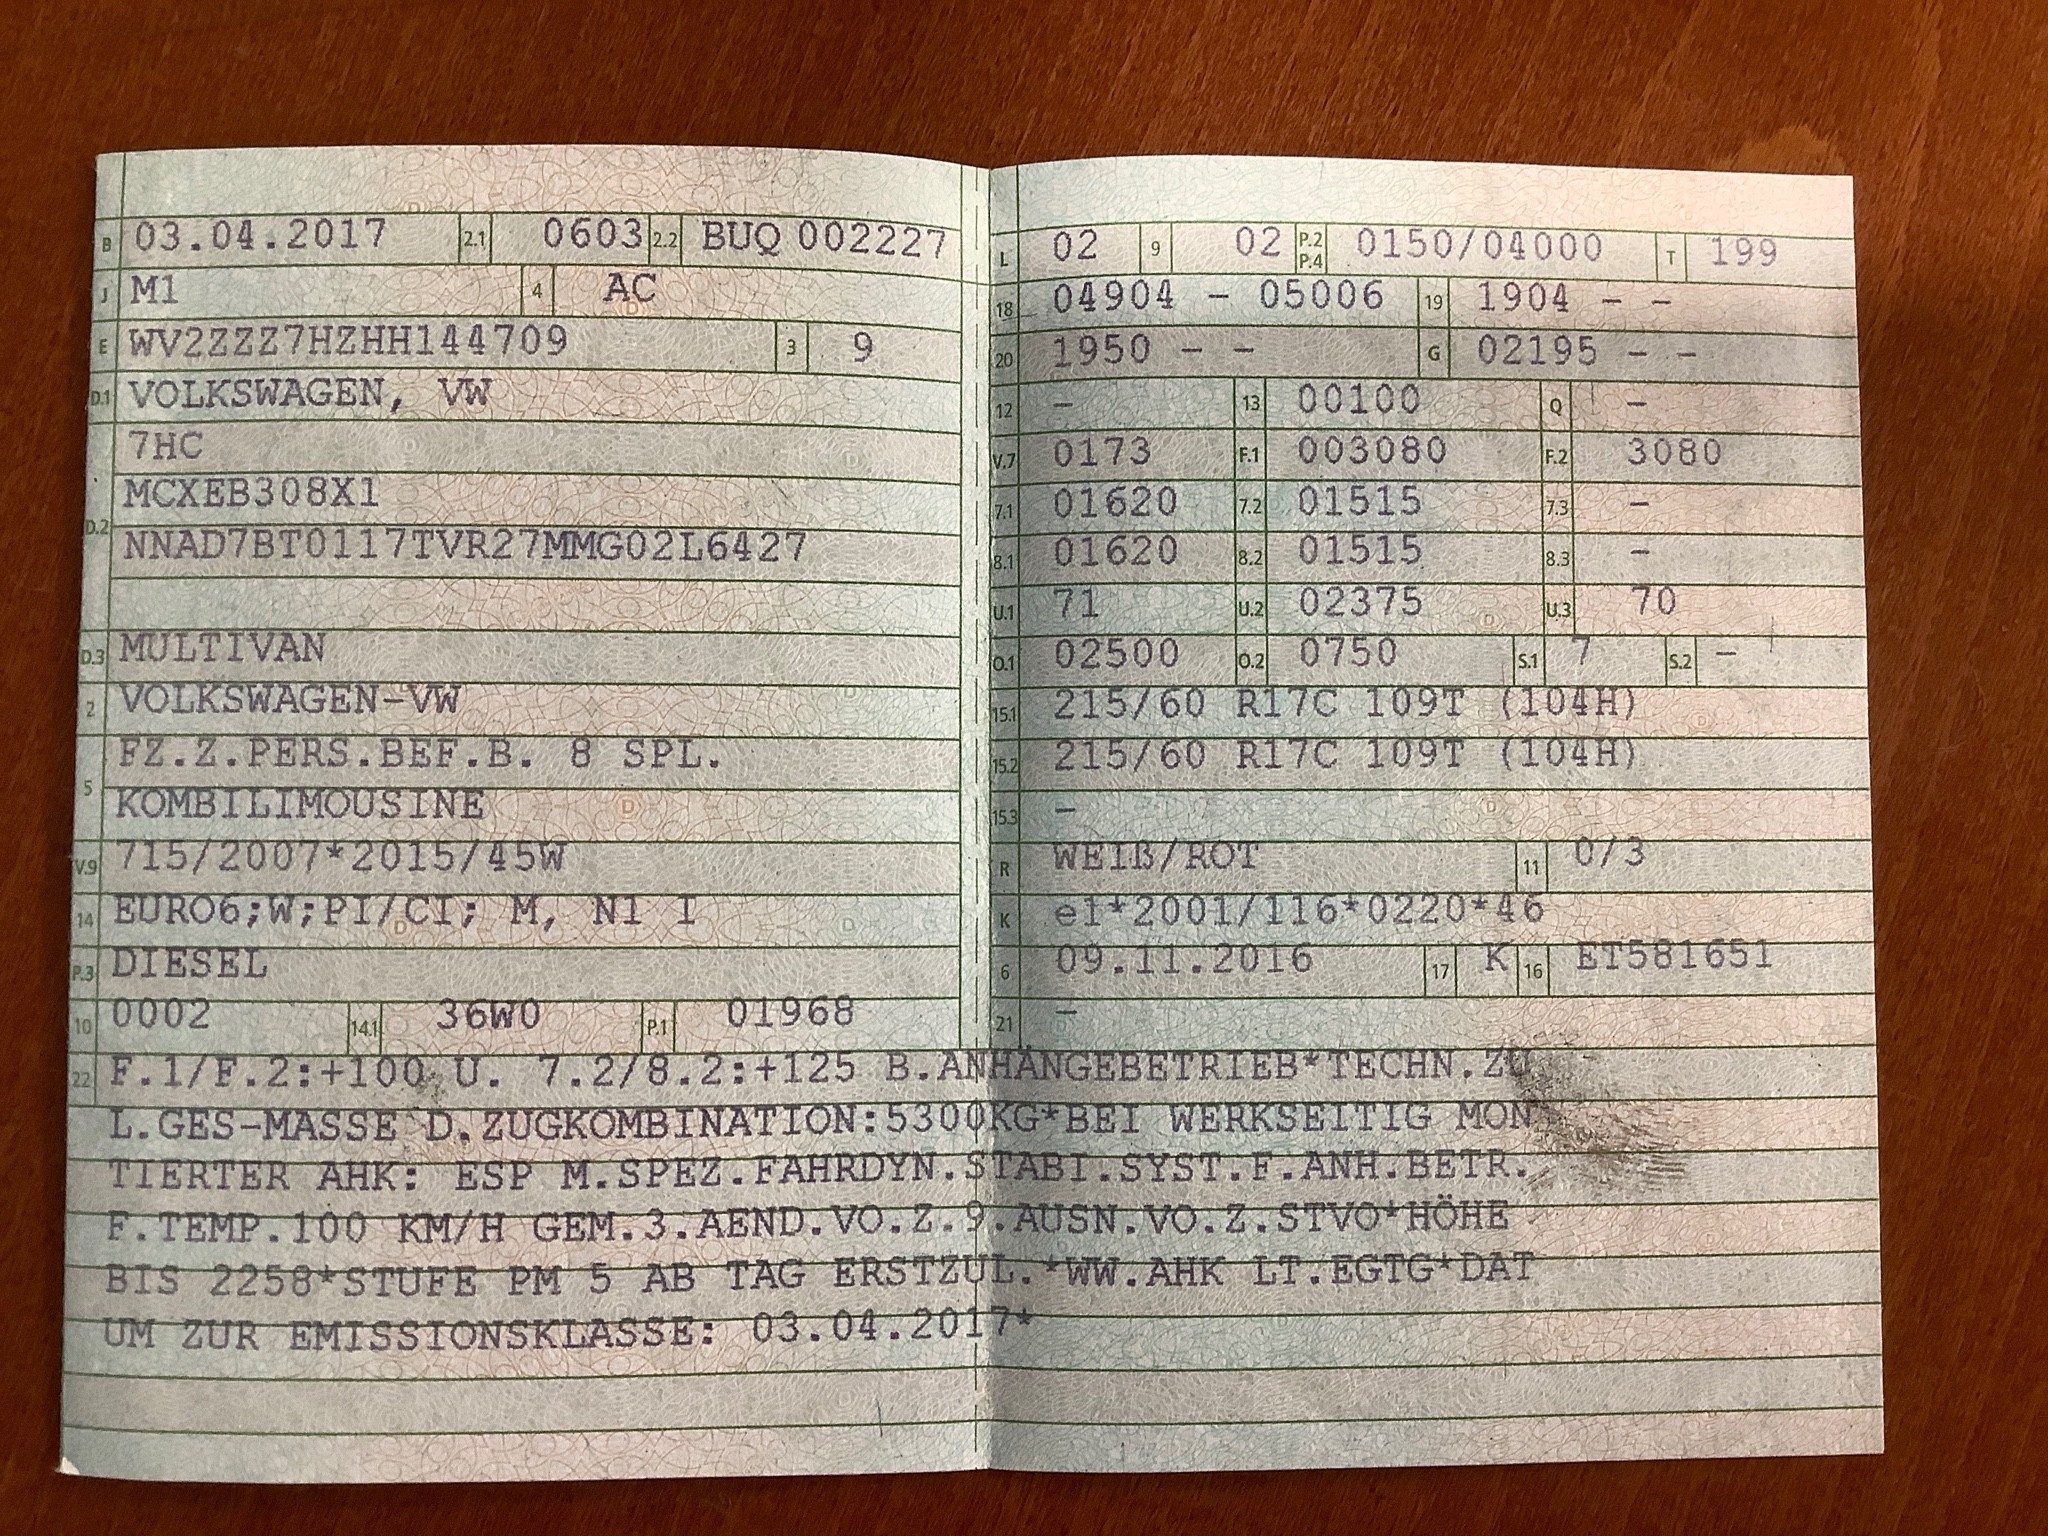 B 03.04.2017 2.1 0603 2.2 BUQ 002227
J M1 4 AC
E WV2ZZZ7HZHH144709 3 9
D.1 VOLKSWAGEN, VW
7HC
MCXEB308X1
D.2 NNAD7BT0117TVR27MMG02L6427
D.3 MULTIVAN
2 VOLKSWAGEN-VW
FZ.Z.PERS.BEF.B. 8 SPL.
5 KOMBILIMOUSINE
V.9 715/2007*2015/45W
14 EURO6;W;PI/CI; M, N1 I
P.3 DIESEL
10 0002 14.1 36W0 P.1 01968
L 02 9 02 P.2 P.4 0150/04000 T 199
18 04904 - 05006 19 1904 - -
20 1950 - - G 02195 - -
12 - 13 00100 Q -
V.7 0173 F.1 003080 F.2 3080
7.1 01620 7.2 01515 7.3 -
8.1 01620 8.2 01515 8.3 -
U.1 71 U.2 02375 U.3 70
O.1 02500 O.2 0750 S.1 7 S.2 -
15.1 215/60 R17C 109T (104H)
15.2 215/60 R17C 109T (104H)
15.3 -
R WEIß/ROT 11 0/3
K e1*2001/116*0220*46
6 09.11.2016 17 K 16 ET581651
21 -
22 F.1/F.2:+100 U. 7.2/8.2:+125 B.ANHÄNGEBETRIEB*TECHN.ZU
L.GES-MASSE D.ZUGKOMBINATION:5300KG*BEI WERKSEITIG MON
TIERTER AHK: ESP M.SPEZ.FAHRDYN.STABI.SYST.F.ANH.BETR.
F.TEMP.100 KM/H GEM.3.AEND.VO.Z.9.AUSN.VO.Z.STVO*HÖHE
BIS 2258*STUFE PM 5 AB TAG ERSTZUL.*WW.AHK LT.EGTG*DAT
UM ZUR EMISSIONSKLASSE: 03.04.2017*